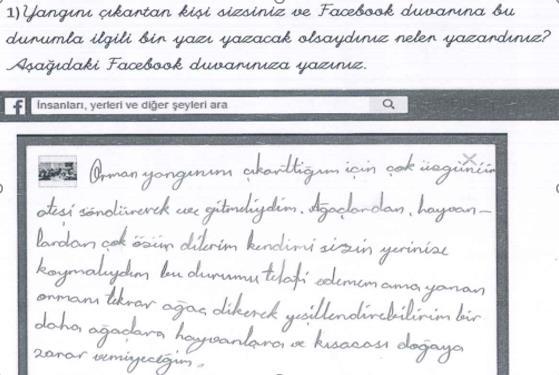 1) Yangını çıkartan kişi sizsiniz ve Facebook duvarına bu
durumla ilgili bir yazı yazacak olsaydınız neler yazardınız?
Aşağıdaki Facebook duvarınıza yazınız.
f İnsanları, yerleri ve diğer şeyleri ara
Orman yangınını çıkarttığım için çok üzgünüm
ateşi söndürerek eve gitmeliydim. Ağaçlardan, hayvan-
lardan çok özür dilerim kendimi sizin yerinize
koymalıydım bu durumu telafi edemem ama yanan
ormanı tekrar ağaç dikerek yeşillendirebilirim bir
daha ağaçlara hayvanlara ve kısacası doğaya
zarar vermiyeceğim.